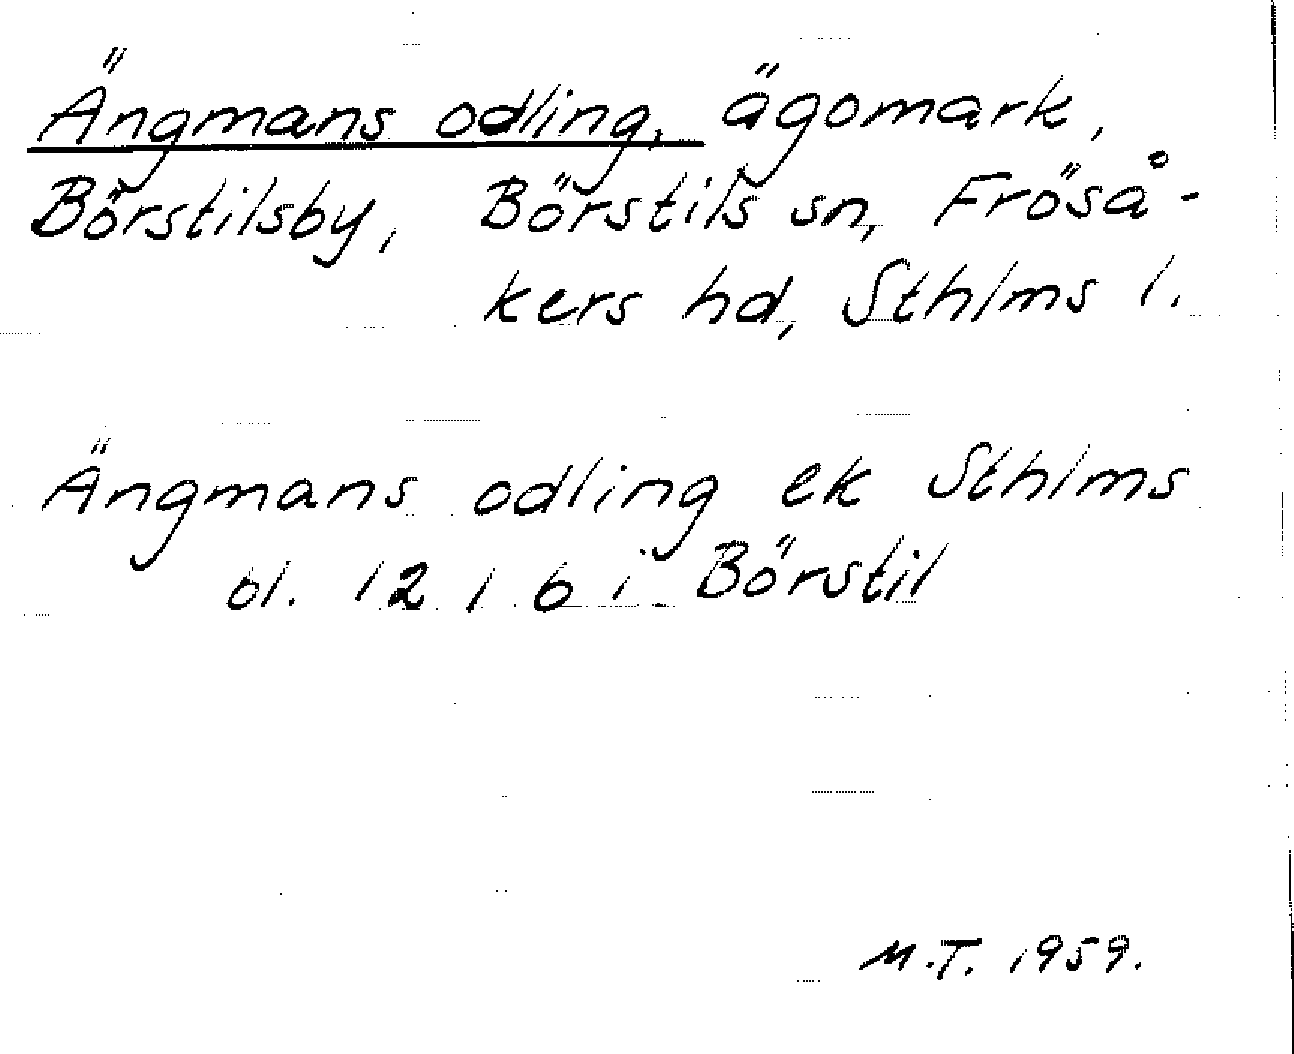 Ängmans odling, ägomark,
Börstilsby, Börstils sn, Fröså-
kers hd, Sthlms l.
Ängmans odling ek Sthlms
bl. 12 1 6 i Börstil
M.T. 1959.